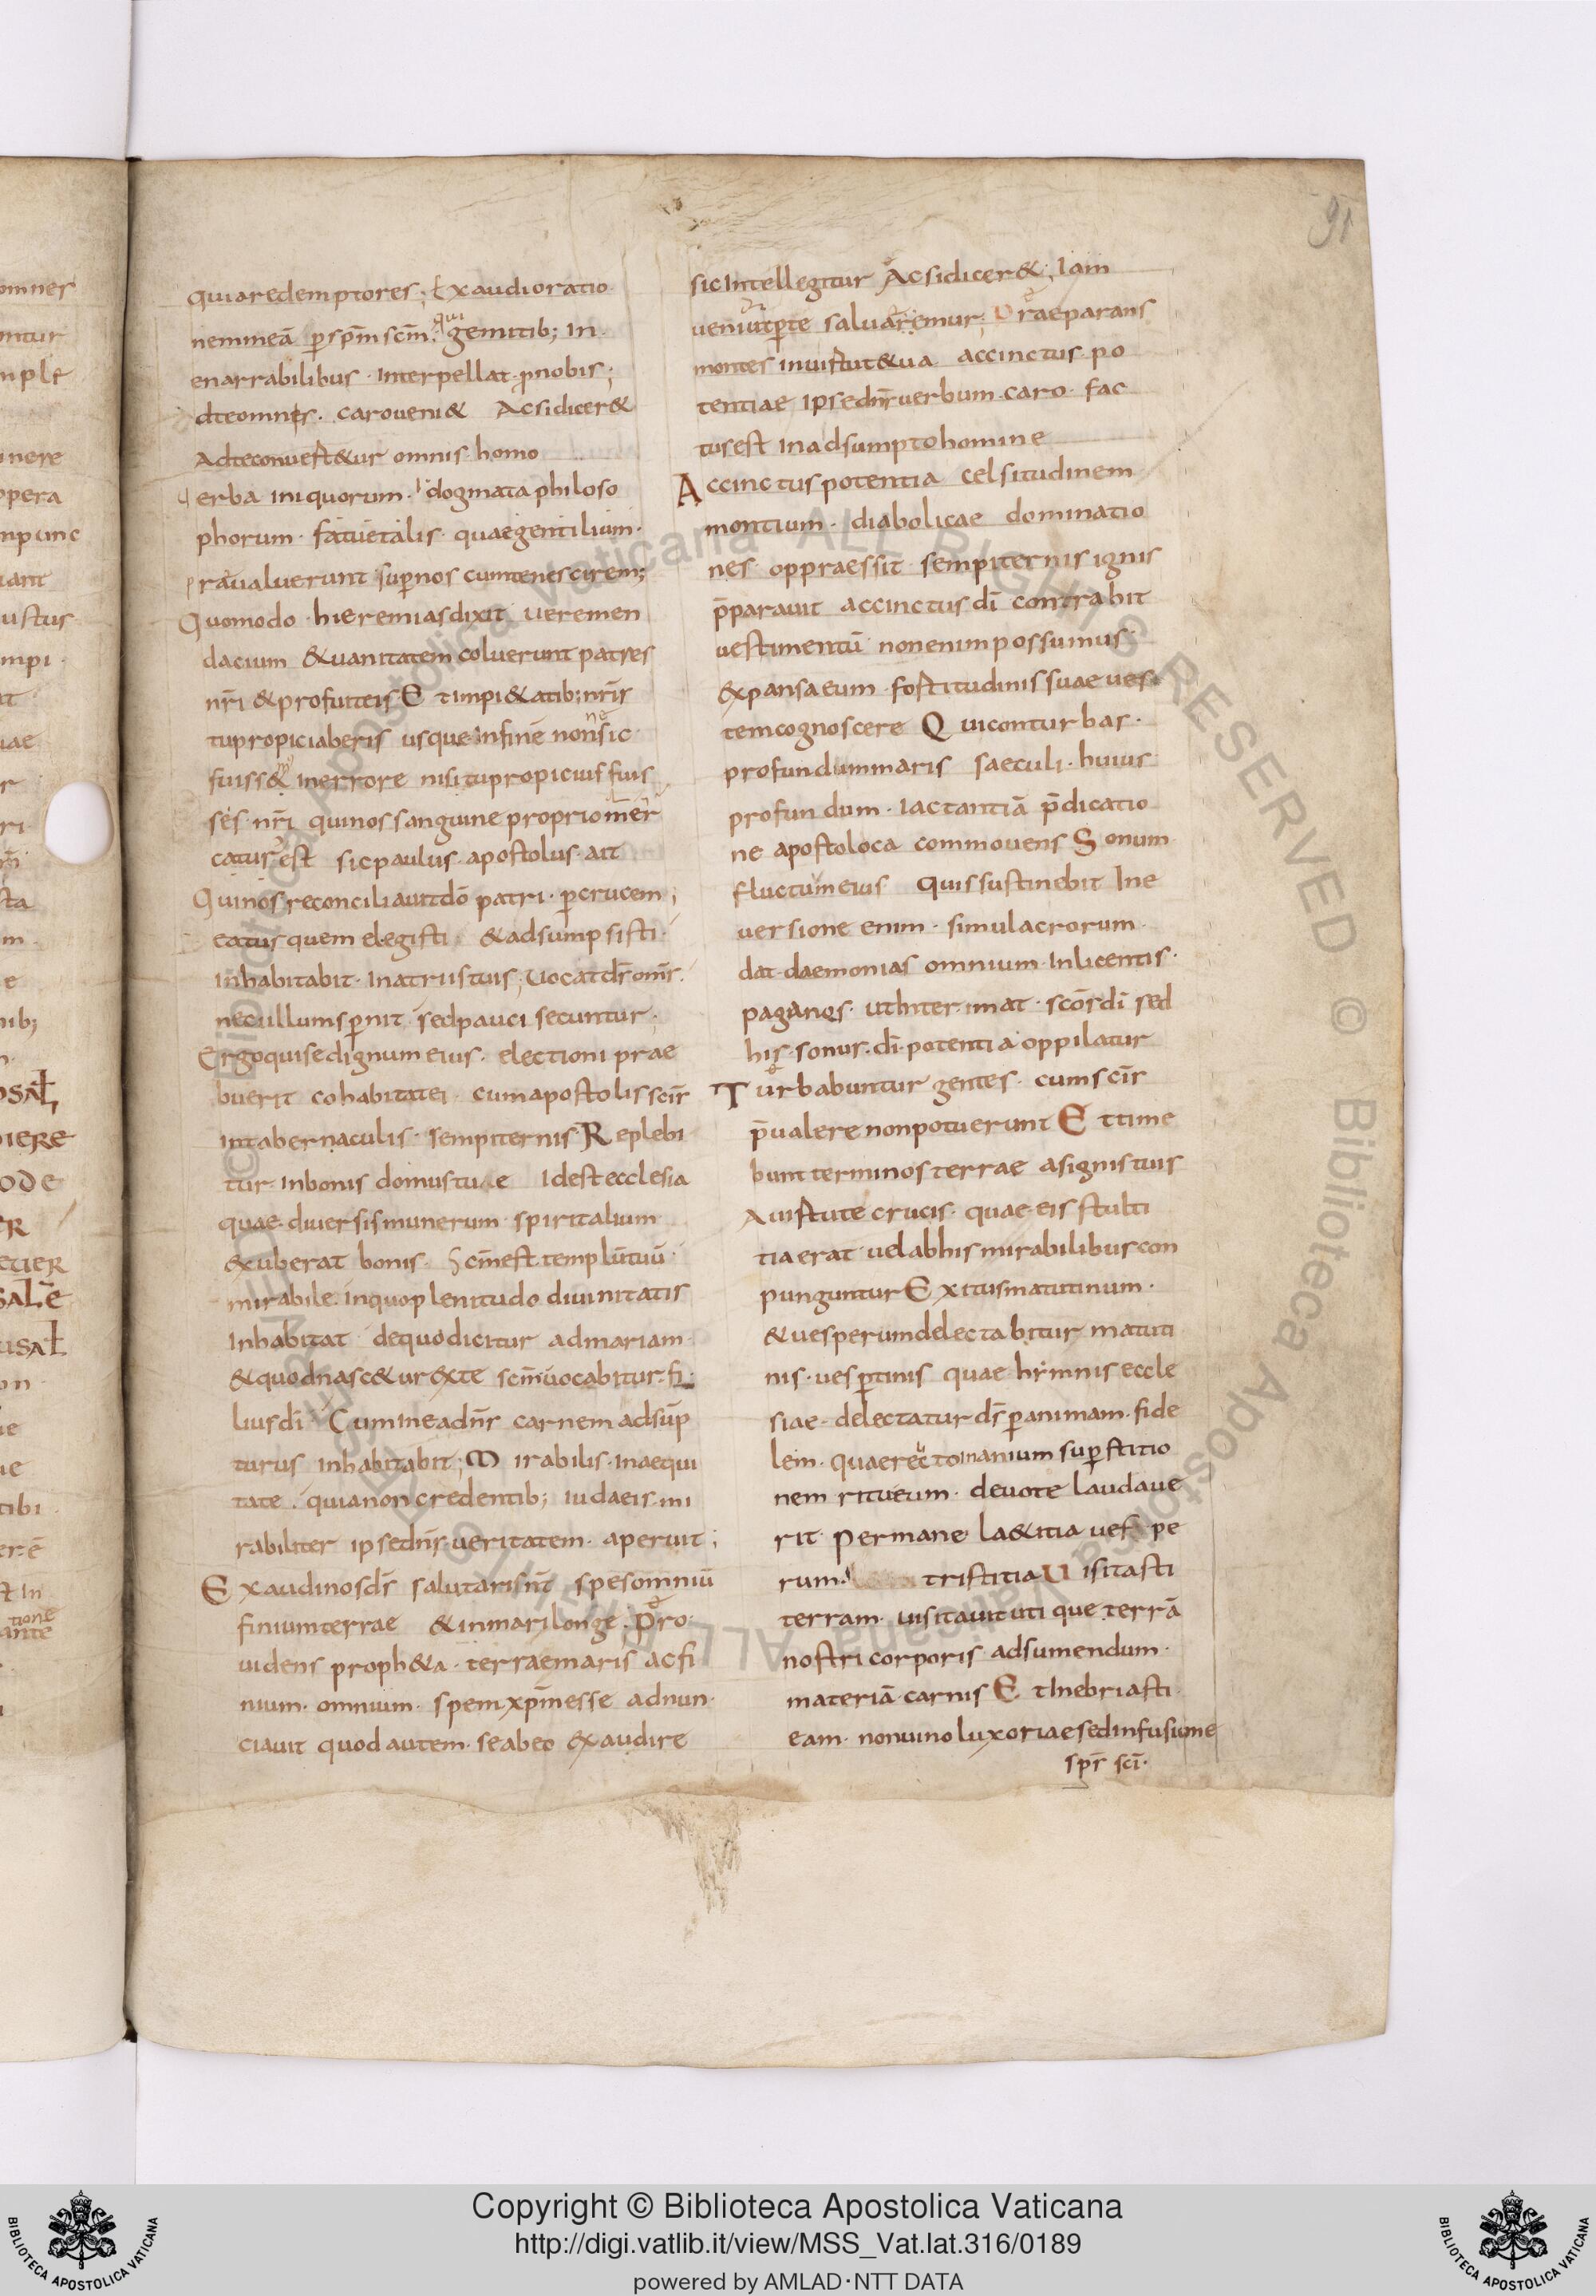 91
quiaredemptores; Exaudioratio
nemmeā ꝑsp̄m sc̄m. qui gemitib; In
enarrabilibus · Interpellat · ꝓnobis;
dteomnis. caroueni& Acsidicer&
Adteconuert&ur omnis homo
Uerba iniquorum · dogmata philoso
phorum · fatuetalis · quaegentilium ·
praeualuerunt suꝑnos cumtenescirem;
Quomodo · hieremiasdixit ueremen
dacium &uanitatem coluerunt patres
nr̄i &profuiteis Et impi&atib; nr̄is
tupropiciaberis usque Infinē nonsic
fuiss& Inerrore nisi tupropicius fuis
ses · nr̄i quinos sanguine proprio mer
catus est sicpaulus · apostolus · ait
Quinos reconciliauitdō patri · ꝑcrucem;
eatus quem elegisti · &adsumpsisti ·
Inhabitabit · Inatriistuis; Uocatds̄omr̄.
necullumsꝑnit sedpauci secuntur;
Ergoquisedignum eius · electioni prae
buerit cohabitatei · cumapostolisscīs
Intabernaculis · sempiternis Replebi
tur Inbonis domustuae Idestecclesia
quae diuersismunerum · spiritalium
exuberat bonis · Scm̄est templūtuū ·
mirabile · Inquoplenitudo diuinitatis
Inhabitat dequodicitur admariam
&quodnasc&ur exte scm̄uocabitur · fi
liusdī · Cumineadn̄s carnem adsūp
turus Inhabitabit; Mirabilis · Inaequi
tate · quianoncredentib; iudaeis · mi
rabiliter ipsedn̄s ueritatem · aperuit;
Exaudinosds̄ salutarisnr̄ spesomniū
finiumterrae &inmarilonge · Pro
uidens proph&a · terraemaris acfi
nium · omnium · spem xp̄messe adnun
ciauit quod autem · seabeo exaudire
sicIntellegitur Acsidicer&; Iam
salvaremur; Praeparans
montes inuirtut&ua accinctus po
tentiae ipsedn̄s uerbum · caro · fac
tusest Inadsumptohomine
Accinctuspotentia celsitudinem
montium · diabolicae dominatio
nes oppraessit sempiternisignis
p̄parauit accinctusdī contrahit
uestimentū nonenimpossumus ·
expansaeum · fortitudinissuae ues
temcognoscere Quiconturbas ·
profundummaris saeculi · huius
profundum · Iactantiā p̄dicatio
ne apostoloca commouens Sonum
fluctumeius quissustinebit Ine
uersione enim · simulacrorum
dat daemonias omnium · Inlicentis ·
paganos · utInterimat · scōsdī sed
his · sonus · dī · potentia oppilatur
Turbabuntur gentes · cumscīs
p̄ualerenonpotuerunt Ettime
buntterminosterrae asignistuis
Auirtute crucis · quae eis stulti
tiaerat uelabhismirabilibuscon
punguntur Exitusmatutinum ·
&uesperumdelectabitur matuti
nis · uesꝑtinis quae hymnis eccle
siae · delectatur ds̄ ꝑanimam · fide
lem · suꝑstitio
nem ritueum · deuote laudaue
rit · Permane la&itia uespe
rum · tristitia Uisitasti
terram · uisitauitutique terrā
nostri corporis adsumendum ·
materiā carnis EtInebriasti ·
eam · nonuino luxoriaesedinfusione
sp̄s sc̄i ·
Copyright © Biblioteca Apostolica Vaticana
http://digi.vatlib.it/view/MSS_Vat.lat.316/0189
powered by AMLAD·NTT DATA